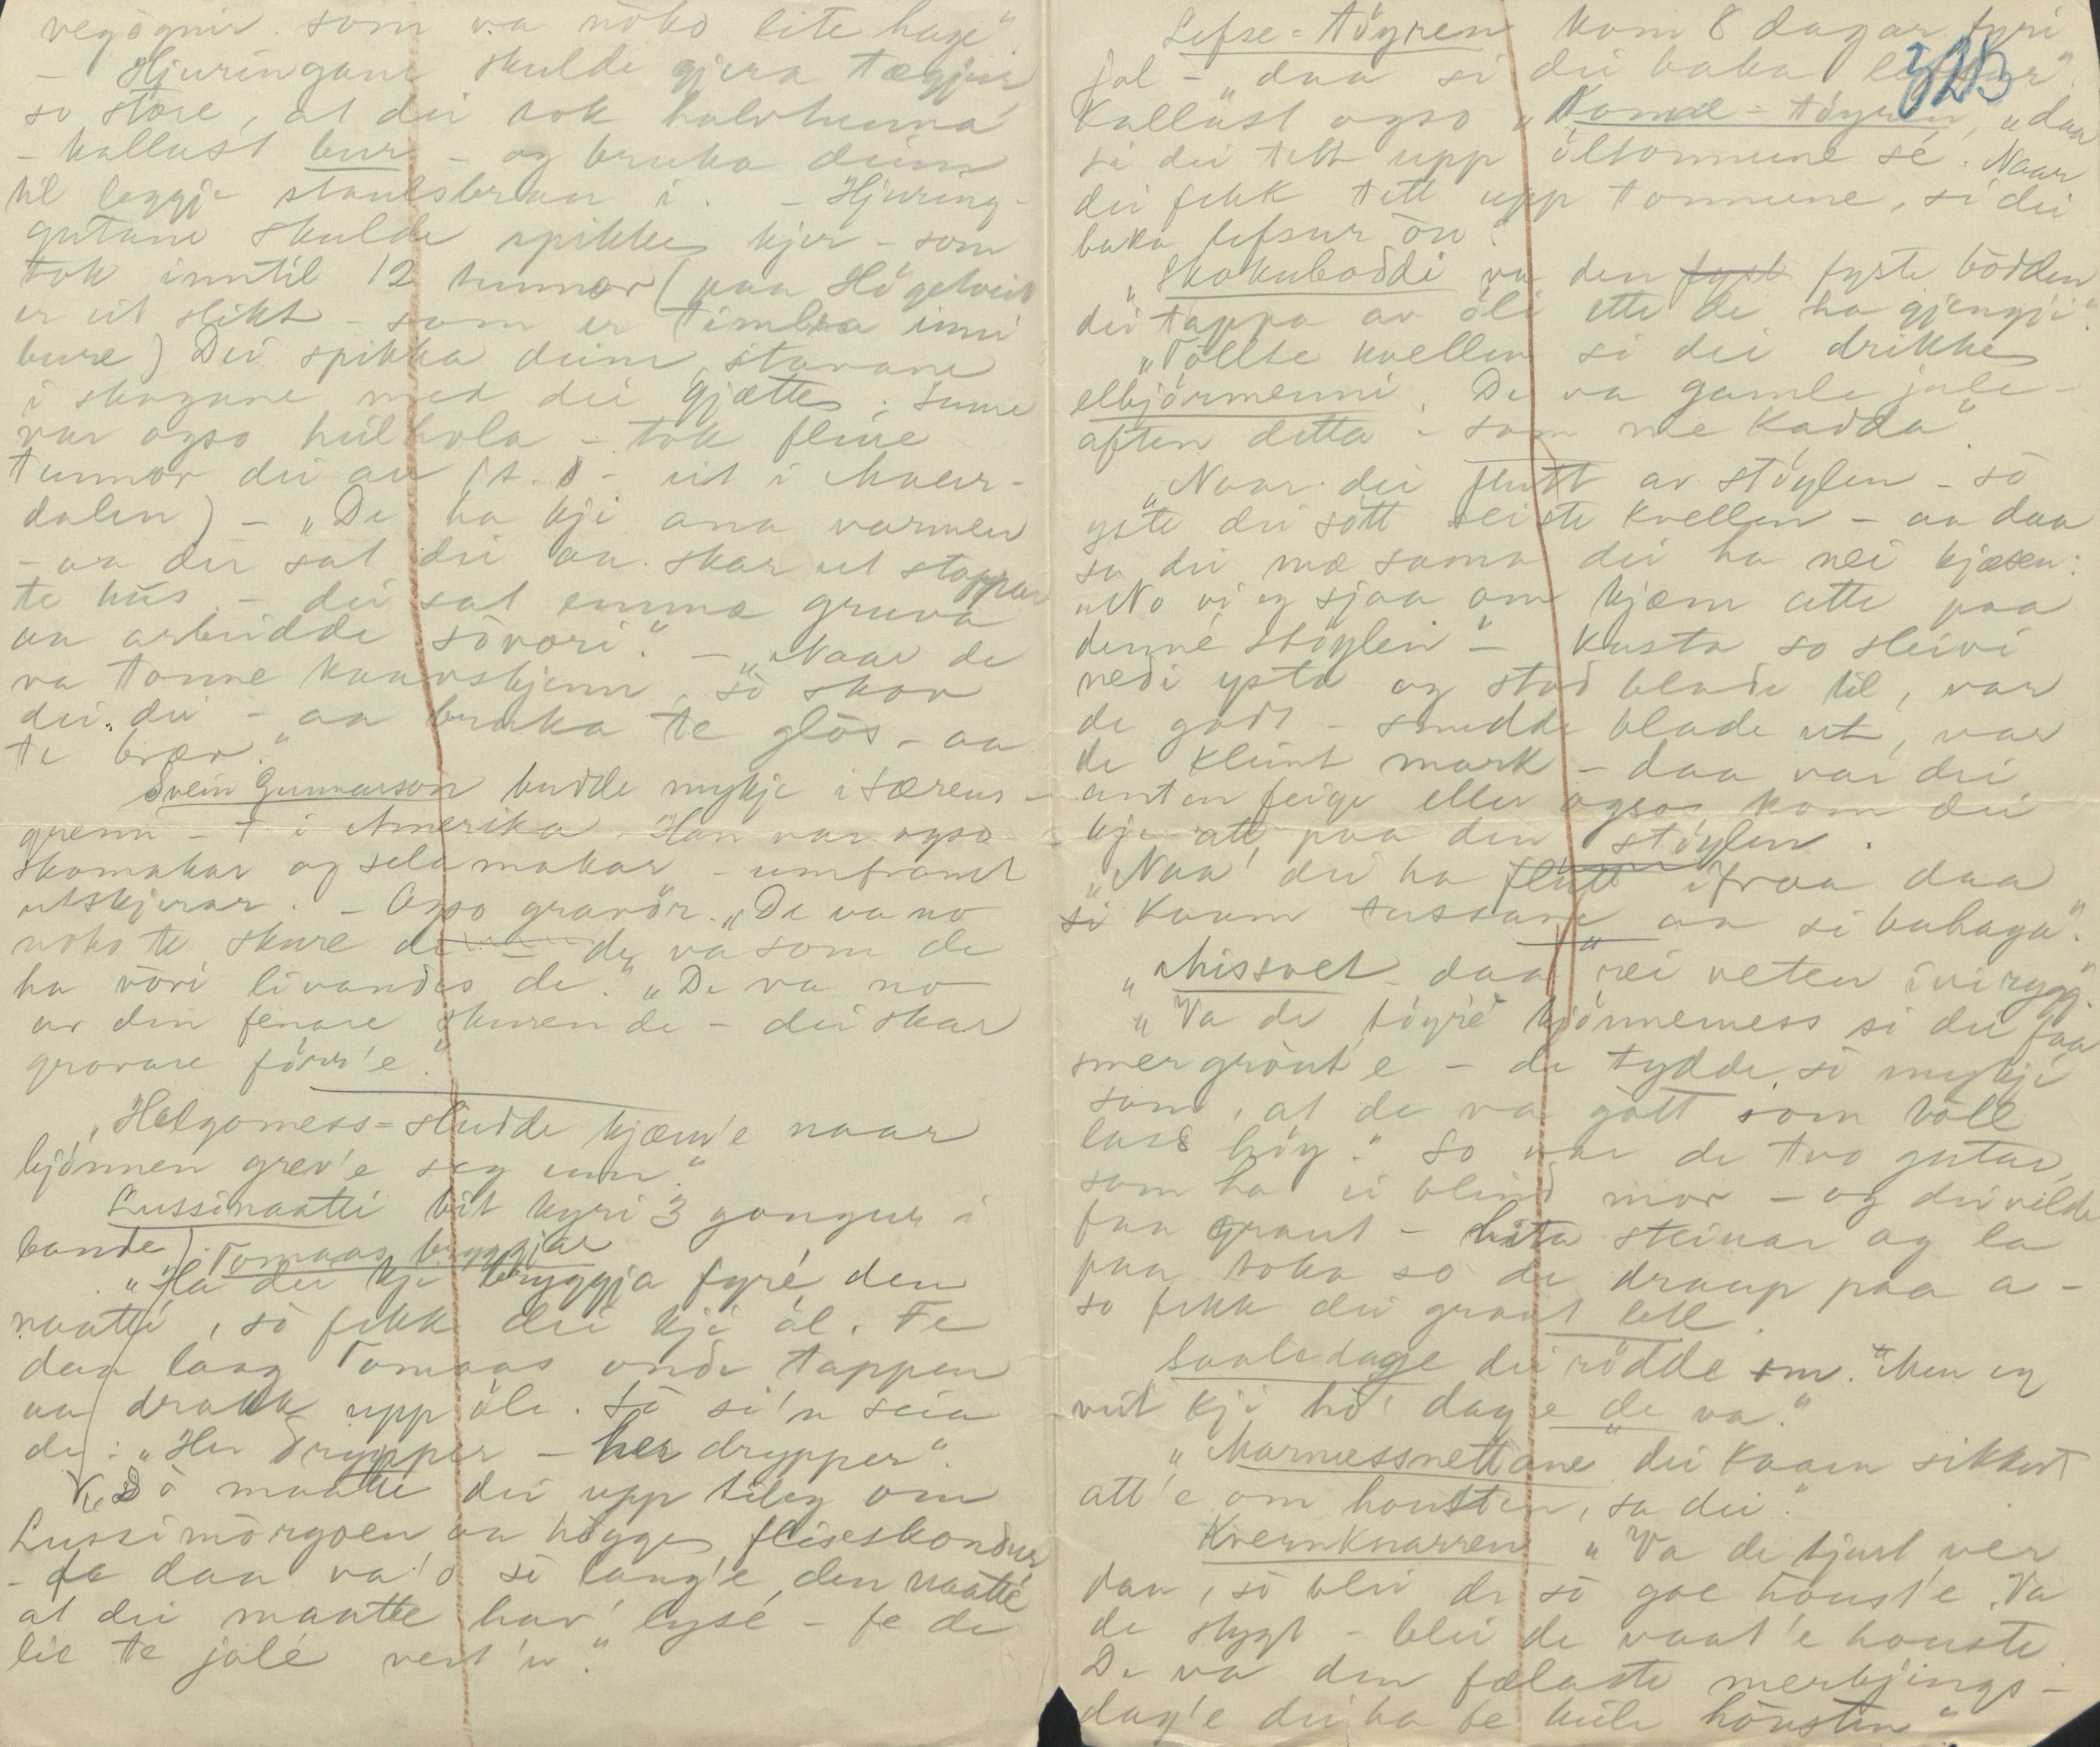 vegögnir som va nöko lite hage".
- Hjuringane skulde gjera tægjur
so store, at dei tok halvtunna
- kallast bur - og bruka deim
til leggje staulsbrau i. - Hjuring-
gutane skulde spikke kjer - som
tok inntil 12 tunnor (paa Högetveit
er eit slikt - som er timbra inni
bure) Dei spikka deim, stavane
i skogane med dei gjætte; sume
var ogso heilhola - tok fleire
tunnor dei au (t. d - eit i
dalen) - "De ha kji ana varmen
- aa der sat dei aa skar ut stappar
te hus - dei sat emma gruva
aa arbeidde sövori." - "Naar de
va tonne skar
dei dei - aa bruka te glös - aa
te brær."
Svein Gunnarson budde mykje i Særens-
grenn - † i Amerika. Han var ogso
skomakar og selamakar - umframt
utskjerar. - Ogso gravör. "De va no
noko te skure de - de va som de
ha vöri livandes de." "De va no
av den finare skuren de - dei skar
grovare förr'e."
"Helgomess=sludde kjæm'e naar
bjönnen grev'e seg unn."
Lussinaatti bit kyri 3 gongur i
bande) Tomaas bryggjar
"Ha dei kji bryggja fyré den
naatti, så fekk dei kji öl. Fe
daa laag Tomaas onde tappen
aa drakk upp öle. Så si'n seia
de: "Her drypper - her drypper".
Så maatte dei upp tileg om
Lussimörgoen aa högge fliseskondur
- fe daa va'd so lang'e den naatté
at dei maatte hav' lysé - fe de
lie te jolé veit'u."
Lefse=töyren kom 8 dagar fyri
jol - "daa si dei baka lefsur".
323
Kallast ogso "Komse=töyren, "daa
si dei tett upp öltonnune sé. Naar
dei fekk tett upp tonnune, si dei
baka lefsur ön."
"Skokuboddi va den fyst fyste bödden
dei tappa av öli ette de ha gjengji".
"Tollte kvellen si dei drikke
elbjörmenni. De va gamle jole-
aften detta - som me kadda".
"Naar dei flutt av stöylen - sö
yste dei sött seiste kvellen - aa daa
sa dei mæ sama dei ha nei kjæsen:
"No vi eg sjaa om kjæm atte paa
denne stöylen" - Kasta so sleivi
nedi ysta og stod blade til, var
de godt - snudde blade ut, var
de kleint mark - daa var dei
anten feige eller ogso kom dei
kje att paa den stöylen.
"Naa' dei ha flutt ifraa daa
si kaam tussane aa si bahaga".
"Missvet - daa rei veten ivi rygg".
"Va de töyré kjönnemess si dei faa
smergraut'e - de tydde so mykji
som, at de va gött som töll
lass höy." So var de tvo gutar,
som ha ei blind mor - og dei vilde
faa graut - heta steinar og la
paa toka so de draup paa a -
so fekk dei graut lell.
Saaledage dei rödde om. "Men eg
veit kji ho' dag'e de va."
"Marmessnettane" dei kaam sikkert
att'e om hausten, sa dei."
Kvernknarren "Va de tjurt ver
daa, sö blei de sö goe haust'e. Va
de stygt - blei de vaat'e hauste.
De va den fælaste merkjings-
dag'e dei ha fe heile hausten"